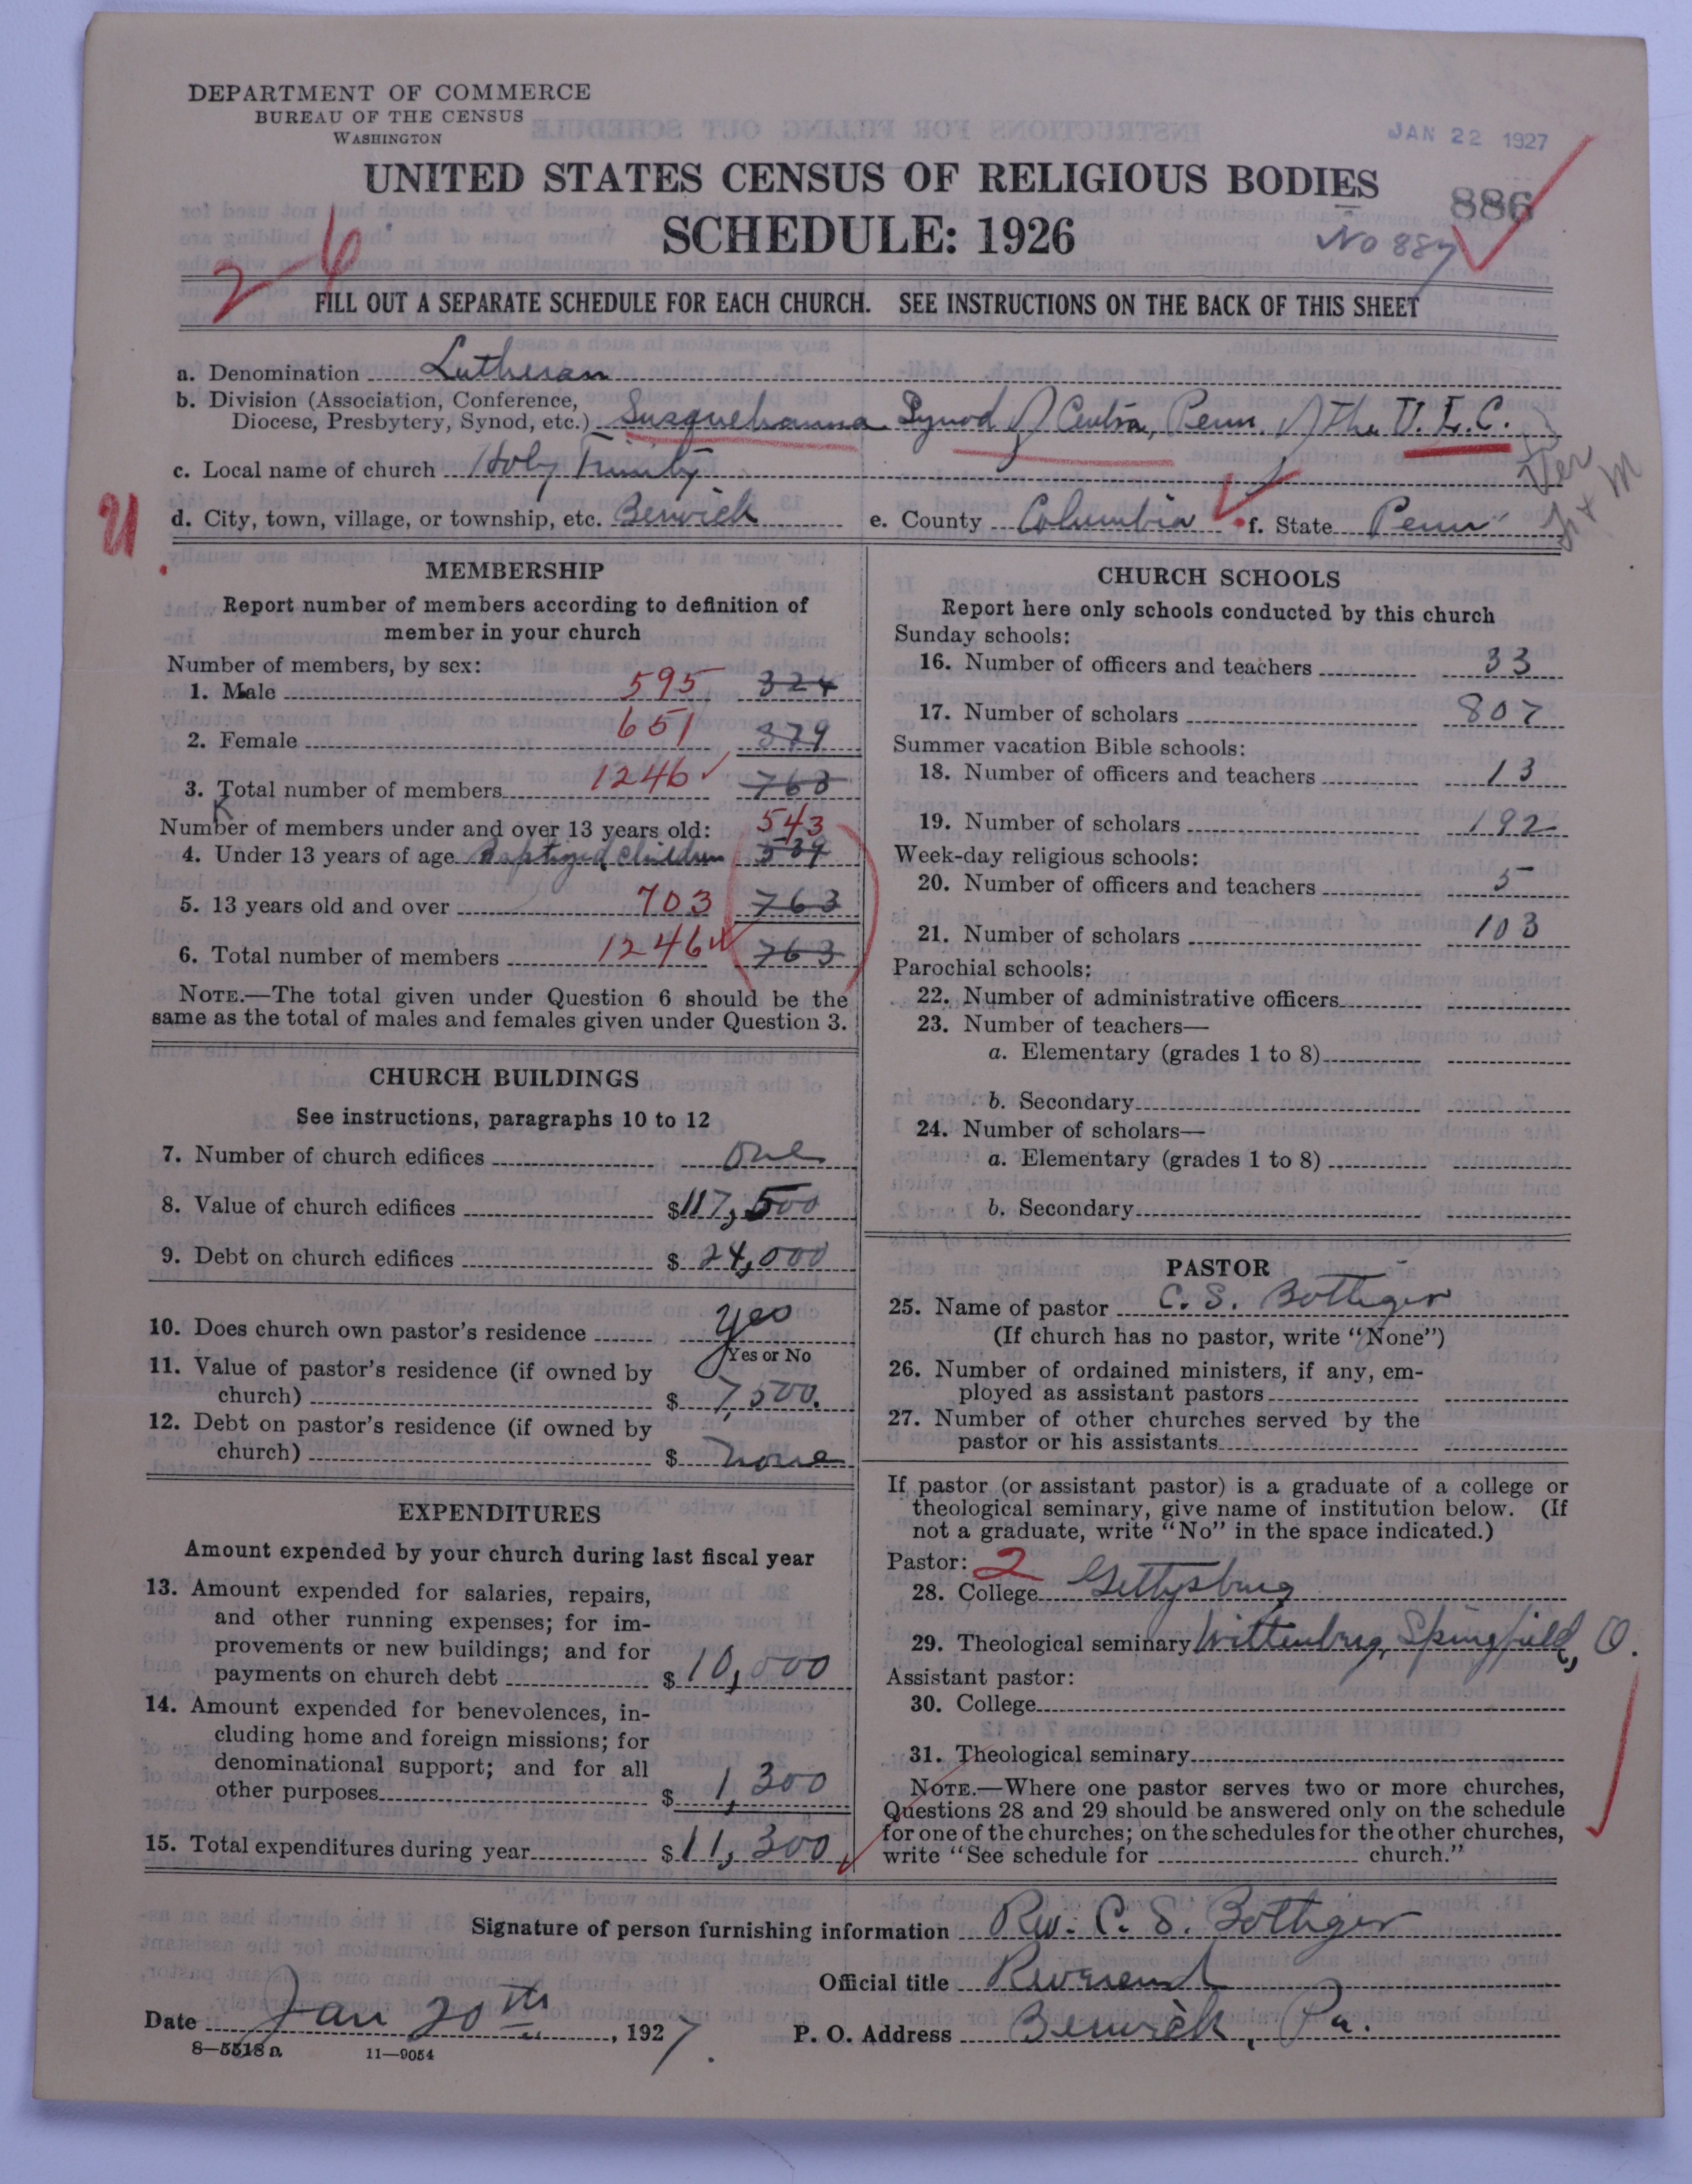 DEPARTMENT OF COMMERCE
BUREAU OF THE CENSUS
WASHINGTON
JAN 22 1927
UNITED STATES CENSUS OF RELIGIOUS BODIES
SCHEDULE: 1926
886
No 887
2-6
FILL OUT A SEPARATE SCHEDULE FOR EACH CHURCH. SEE INSTRUCTIONS ON THE BACK OF THIS SHEET
a. Denomination Lutheran
b. Division (Association, Conference,
Diocese, Presbytery, Synod, etc.) Susquehanna Synod of Central Penn. of the U. L. C.
c. Local name of church Holy Trinity
d. City, town, village, or township, etc. Berwick e. County Columbia f. State Penn
MEMBERSHIP
Report number of members according to definition of
member in your church
Number of members, by sex:
1. Male 595 324
2. Female 651 379
3. Total number of members 1246 763
Number of members under and over 13 years old: 543
4. Under 13 years of age Baptized Children 539
5. 13 years old and over 703 763
6. Total number of members 1246 763
NOTE.—The total given under Question 6 should be the
same as the total of males and females given under Question 3.
CHURCH BUILDINGS
See instructions, paragraphs 10 to 12
7. Number of church edifices One
8. Value of church edifices $117,500
9. Debt on church edifices $24,000
10. Does church own pastor's residence yes
Yes or No
11. Value of pastor's residence (if owned by
church) $7,500.
12. Debt on pastor's residence (if owned by
church) $none
EXPENDITURES
Amount expended by your church during last fiscal year
13. Amount expended for salaries, repairs,
and other running expenses; for im-
provements or new buildings; and for
payments on church debt $10,000
14. Amount expended for benevolences, in-
cluding home and foreign missions; for
denominational support; and for all
other purposes $1,300
15. Total expenditures during year $11,300
CHURCH SCHOOLS
Report here only schools conducted by this church
Sunday schools:
16. Number of officers and teachers 33
17. Number of scholars 807
Summer vacation Bible schools:
18. Number of officers and teachers 13
19. Number of scholars 192
Week-day religious schools:
20. Number of officers and teachers 5
21. Number of scholars 103
Parochial schools:
22. Number of administrative officers
23. Number of teachers—
a. Elementary (grades 1 to 8)
b. Secondary
24. Number of scholars—
a. Elementary (grades 1 to 8)
b. Secondary
PASTOR
25. Name of pastor C. S. Bottiger
(If church has no pastor, write "None")
26. Number of ordained ministers, if any, em-
ployed as assistant pastors
27. Number of other churches served by the
pastor or his assistants
If pastor (or assistant pastor) is a graduate of a college or
theological seminary, give name of institution below. (If
not a graduate, write "No" in the space indicated.)
Pastor: 2
28. College Gettysburg
29. Theological seminary Wittenburg, Springfield, O.
Assistant pastor:
30. College
31. Theological seminary
NOTE.—Where one pastor serves two or more churches,
Questions 28 and 29 should be answered only on the schedule
for one of the churches; on the schedules for the other churches,
write "See schedule for church."
Signature of person furnishing information Rev. C. S. Bottiger
Official title Reverend
Date Jan 20th, 1927. P. O. Address Berwick, Pa.
8—5518 a 11—9054